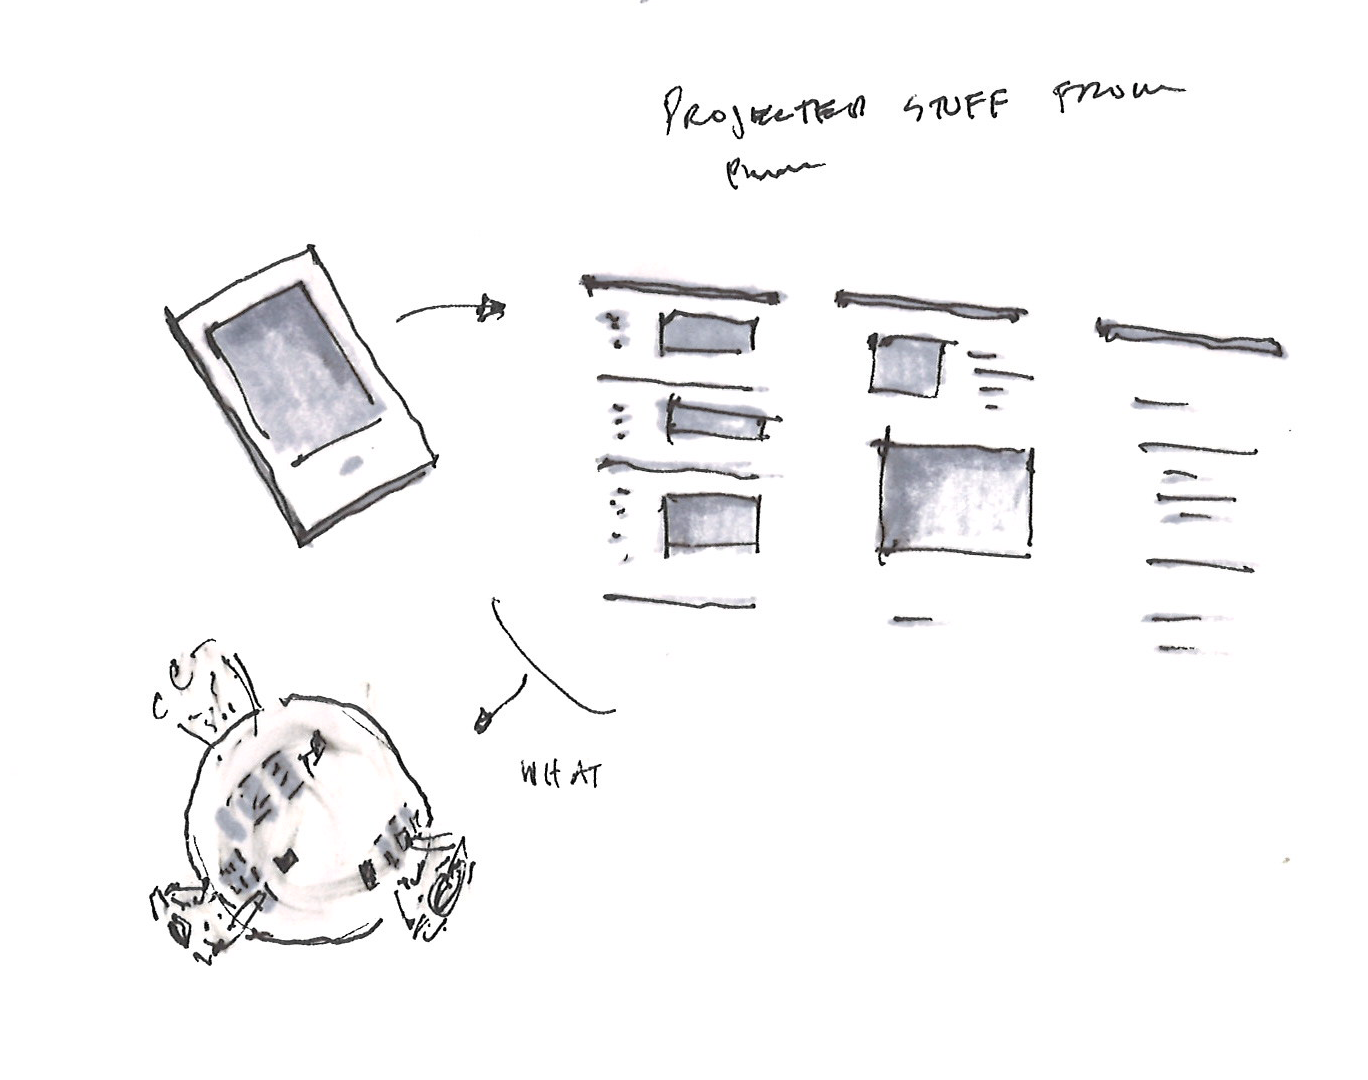 PROJECTED STUFF FROM
Phone
WHAT